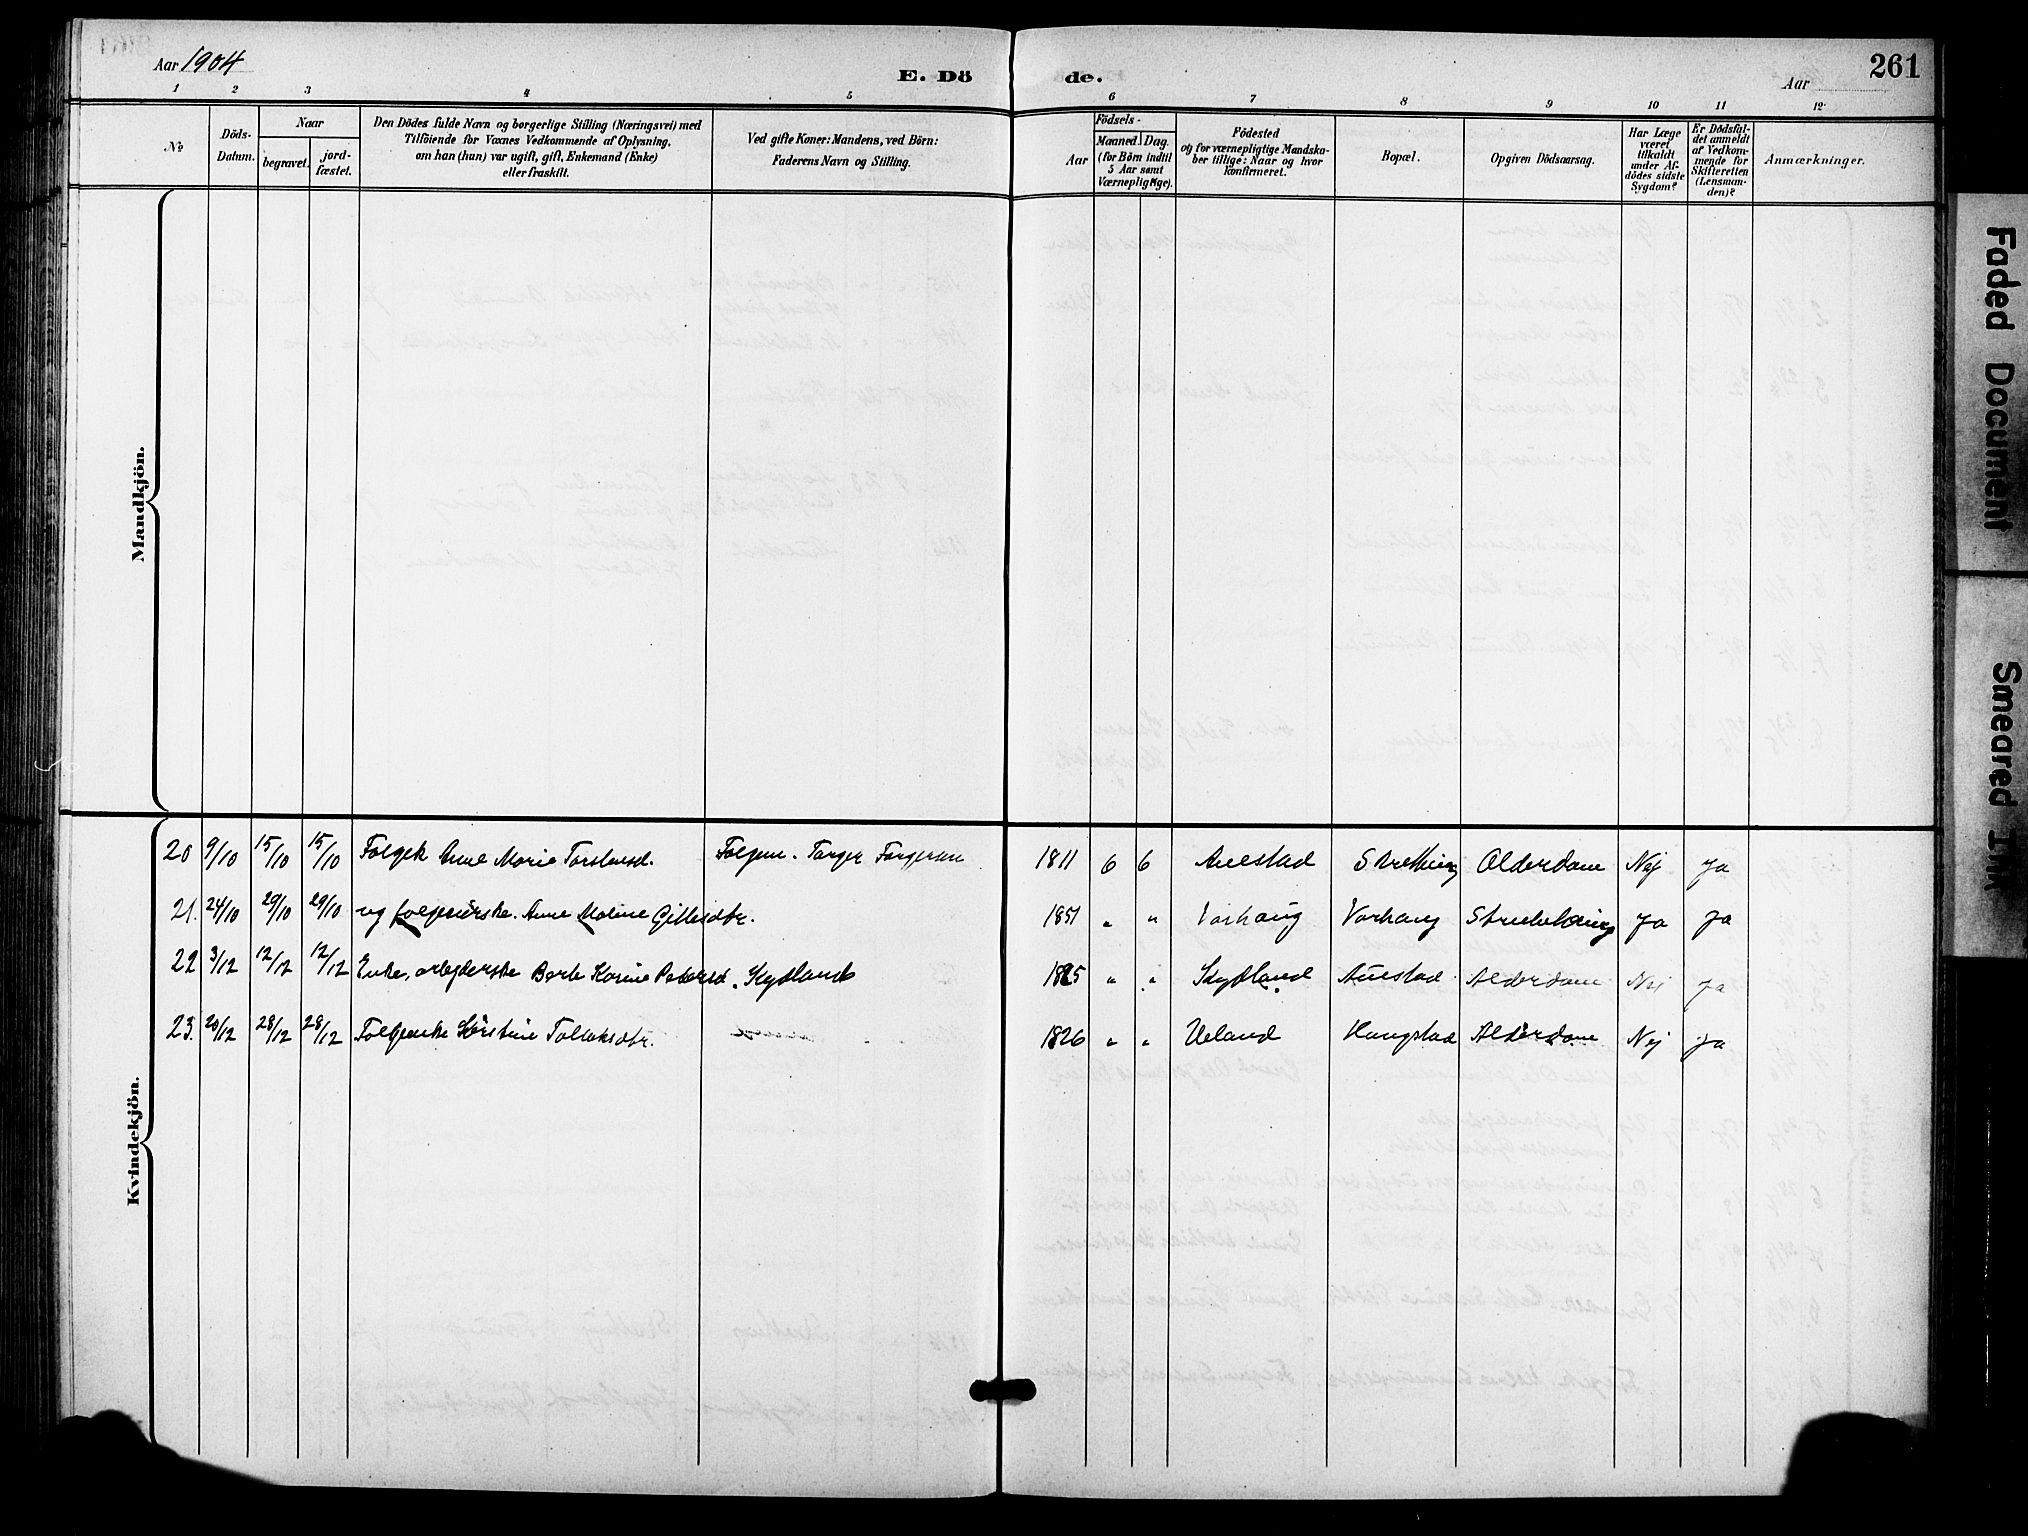 Aar 1904
E. Dö
de.
Aar
261
1 2 3 4 5 6 7 8 9 10 11 12
No
Döds-
Datum.
Naar
begravet.
jord-
fæstet.
Den Dödes fulde Navn og borgerlige Stilling (Næringsvei) med
Tilföiende for Voxnes Vedkommende af Oplysning,
om han (hun) var ugift, gift, Enkemand (Enke)
eller fraskilt.
Ved gifte Koner: Mandens, ved Börn:
Faderens Navn og Stilling.
Födsels-
Aar
Maaned. Dag.
(for Börn indtil
5 Aar samt
Værnepligtige).
Födested
og for værnepligtige Mandska-
ber tillige: Naar og hvor
konfirmeret.
Bopæl.
Opgiven Dödsaarsag.
Har Læge
været
tilkaldt
under Af-
dödes sidste
Sygdom?
Er Dödsfal-
det anmeldt
af Vedkom-
mende for
Skifteretten
(Lensman-
den)?
Anmærkninger.
Mandkjön.
Kvindekjön.
20 9/10 15/10 15/10 Folgek Anne Marie Torstensd. Folgem. Torger Torgersen 1811 6 6 Auestad Alderdom Nej Ja
21. 24/10 29/10 29/10 ug Anne Malene 1851 " " Varhaug Varhaug Ja Ja
22 3/12 12/12 12/12 Enke, arbejderske Berte Karine Pedersd. Skydland 1825 " " Skydland Auestad Alderdom Nej Ja
23. 20/12 28/12 28/12 Kirstine Tollaksdtr. 1826 " " Ueland Haugstad Alderdom Nej Ja
Faded Document
Smeared Ink